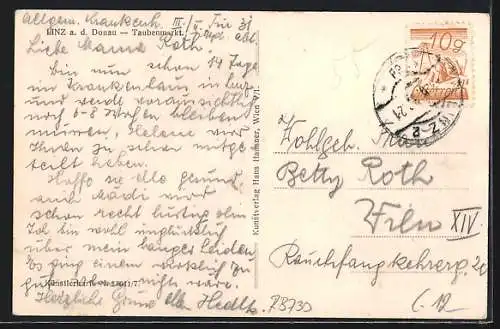 Allgem. Krankenh. III/ Tür 31
LINZ a. d. Donau — Taubenmarkt.
Liebe Mama Roth.
Bin nun schon 14 Tage
im Krankenhaus in Linz
und werde voraussichtlich
noch 6-8 Wochen bleiben
müssen, Helene wird
Ihnen ja schon mitge-
teilt haben.
Hoffe sie alle gesund,
auch Mädi wird
schon recht lustig
Ich bin wohl unglücklich
über mein langes Leiden.
Es ging einem wirklich zu
gut
Künstlerkarte Nr.
Herzliche Grüße
Kunstverlag Hans Hammer, Wien V/1.
10g
LINZ 2
55
Wohlgeb. Frau
Betty Roth
Wien
XIV.
Rauchfangkehrerg 20
RB730